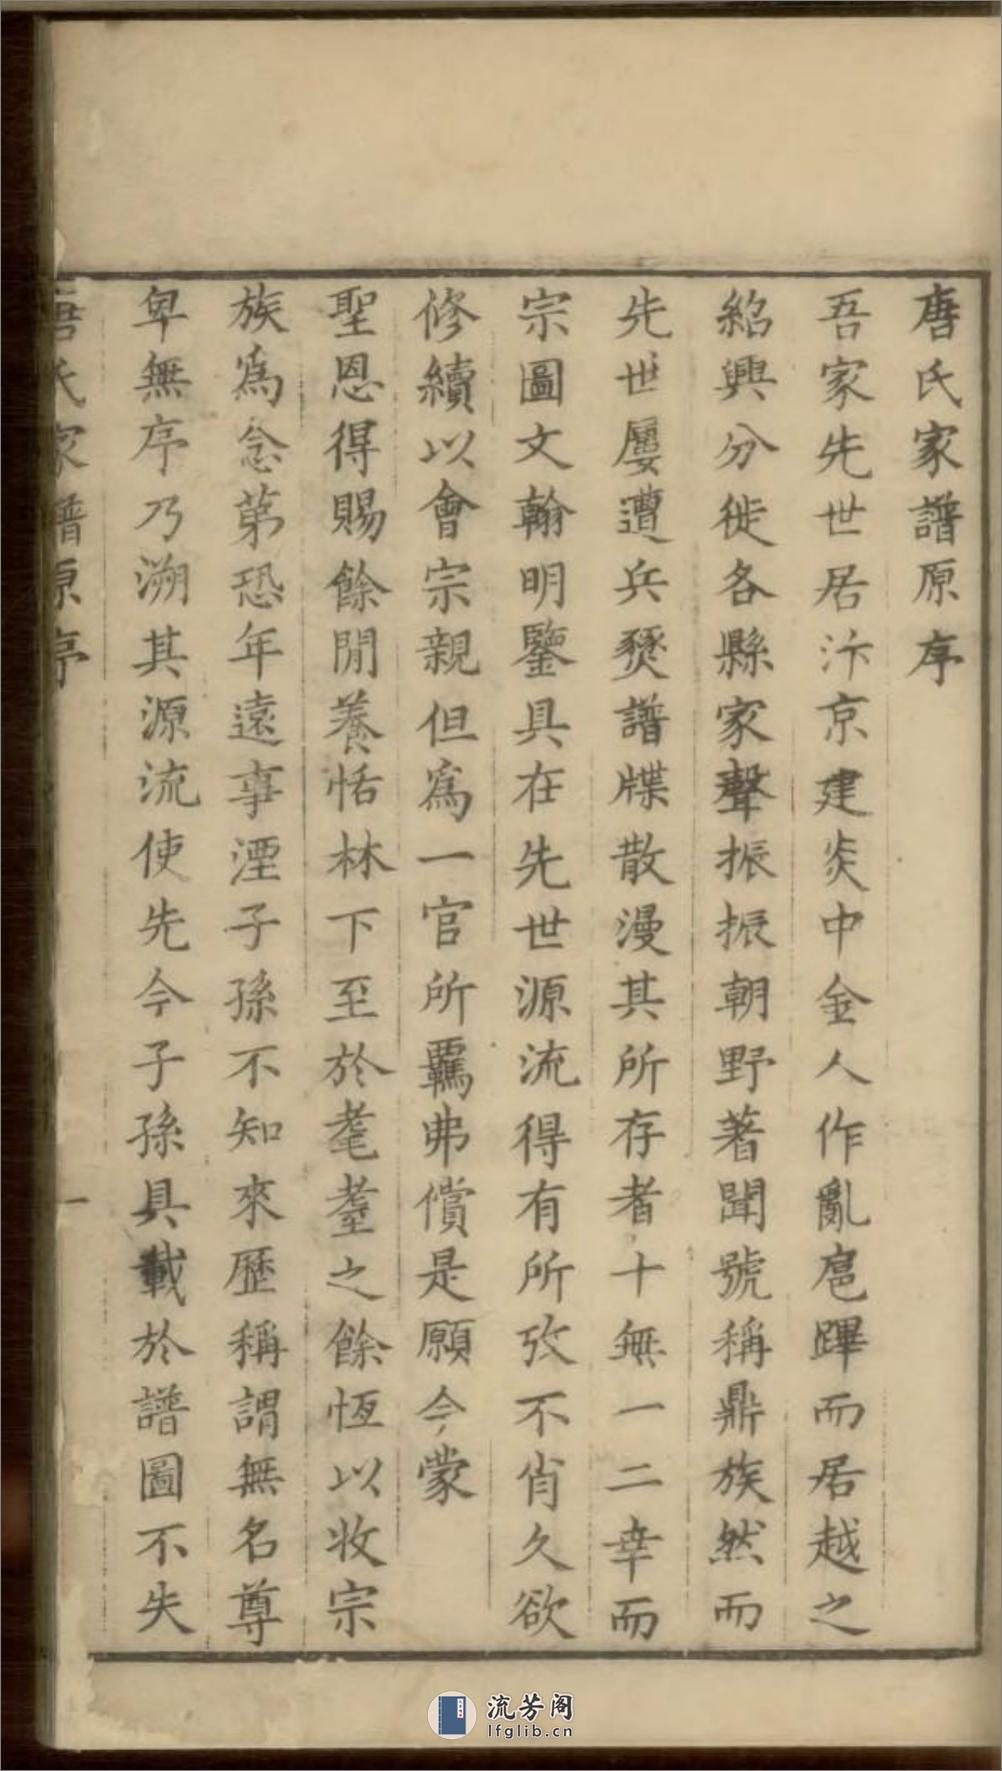 唐氏家譜原序
吾家先世居汴京建炎中金人作亂扈蹕而居越之
紹興分徙各縣家聲振振朝野著聞號稱鼎族然而
先世屢遭兵燹譜牒散漫其所存者十無一二幸而
宗圖文翰明鑒具在先世源流得有所攷不肖久欲
修續以會宗親但為一官所羈弗償是願今蒙
聖恩得賜餘閒養恬林下至於耄耋之餘恆以收宗
族為念第恐年遠事湮子孫不知來歷稱謂無名尊
卑無序乃溯其源流使先今子孫具載於譜圖不失
唐氏家譜原序
一
流芳阁
lfglib.cn